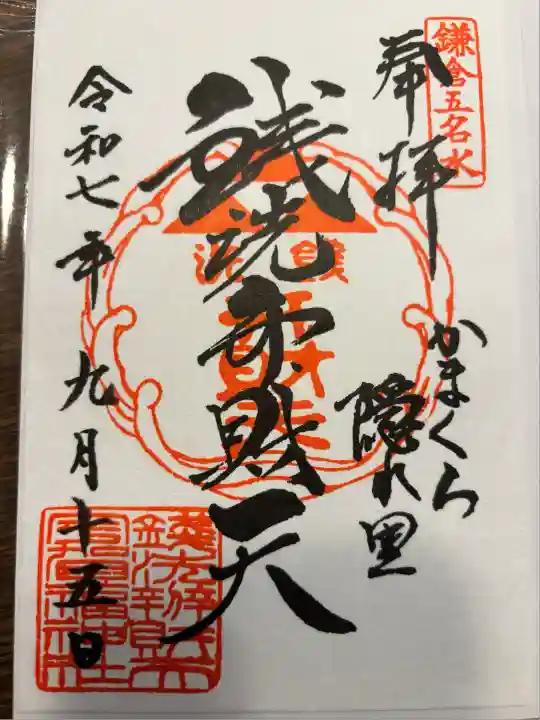 鎌倉五名水
奉拝
かまくら
隠れ里
銭洗弁財天
令和七年九月十五日